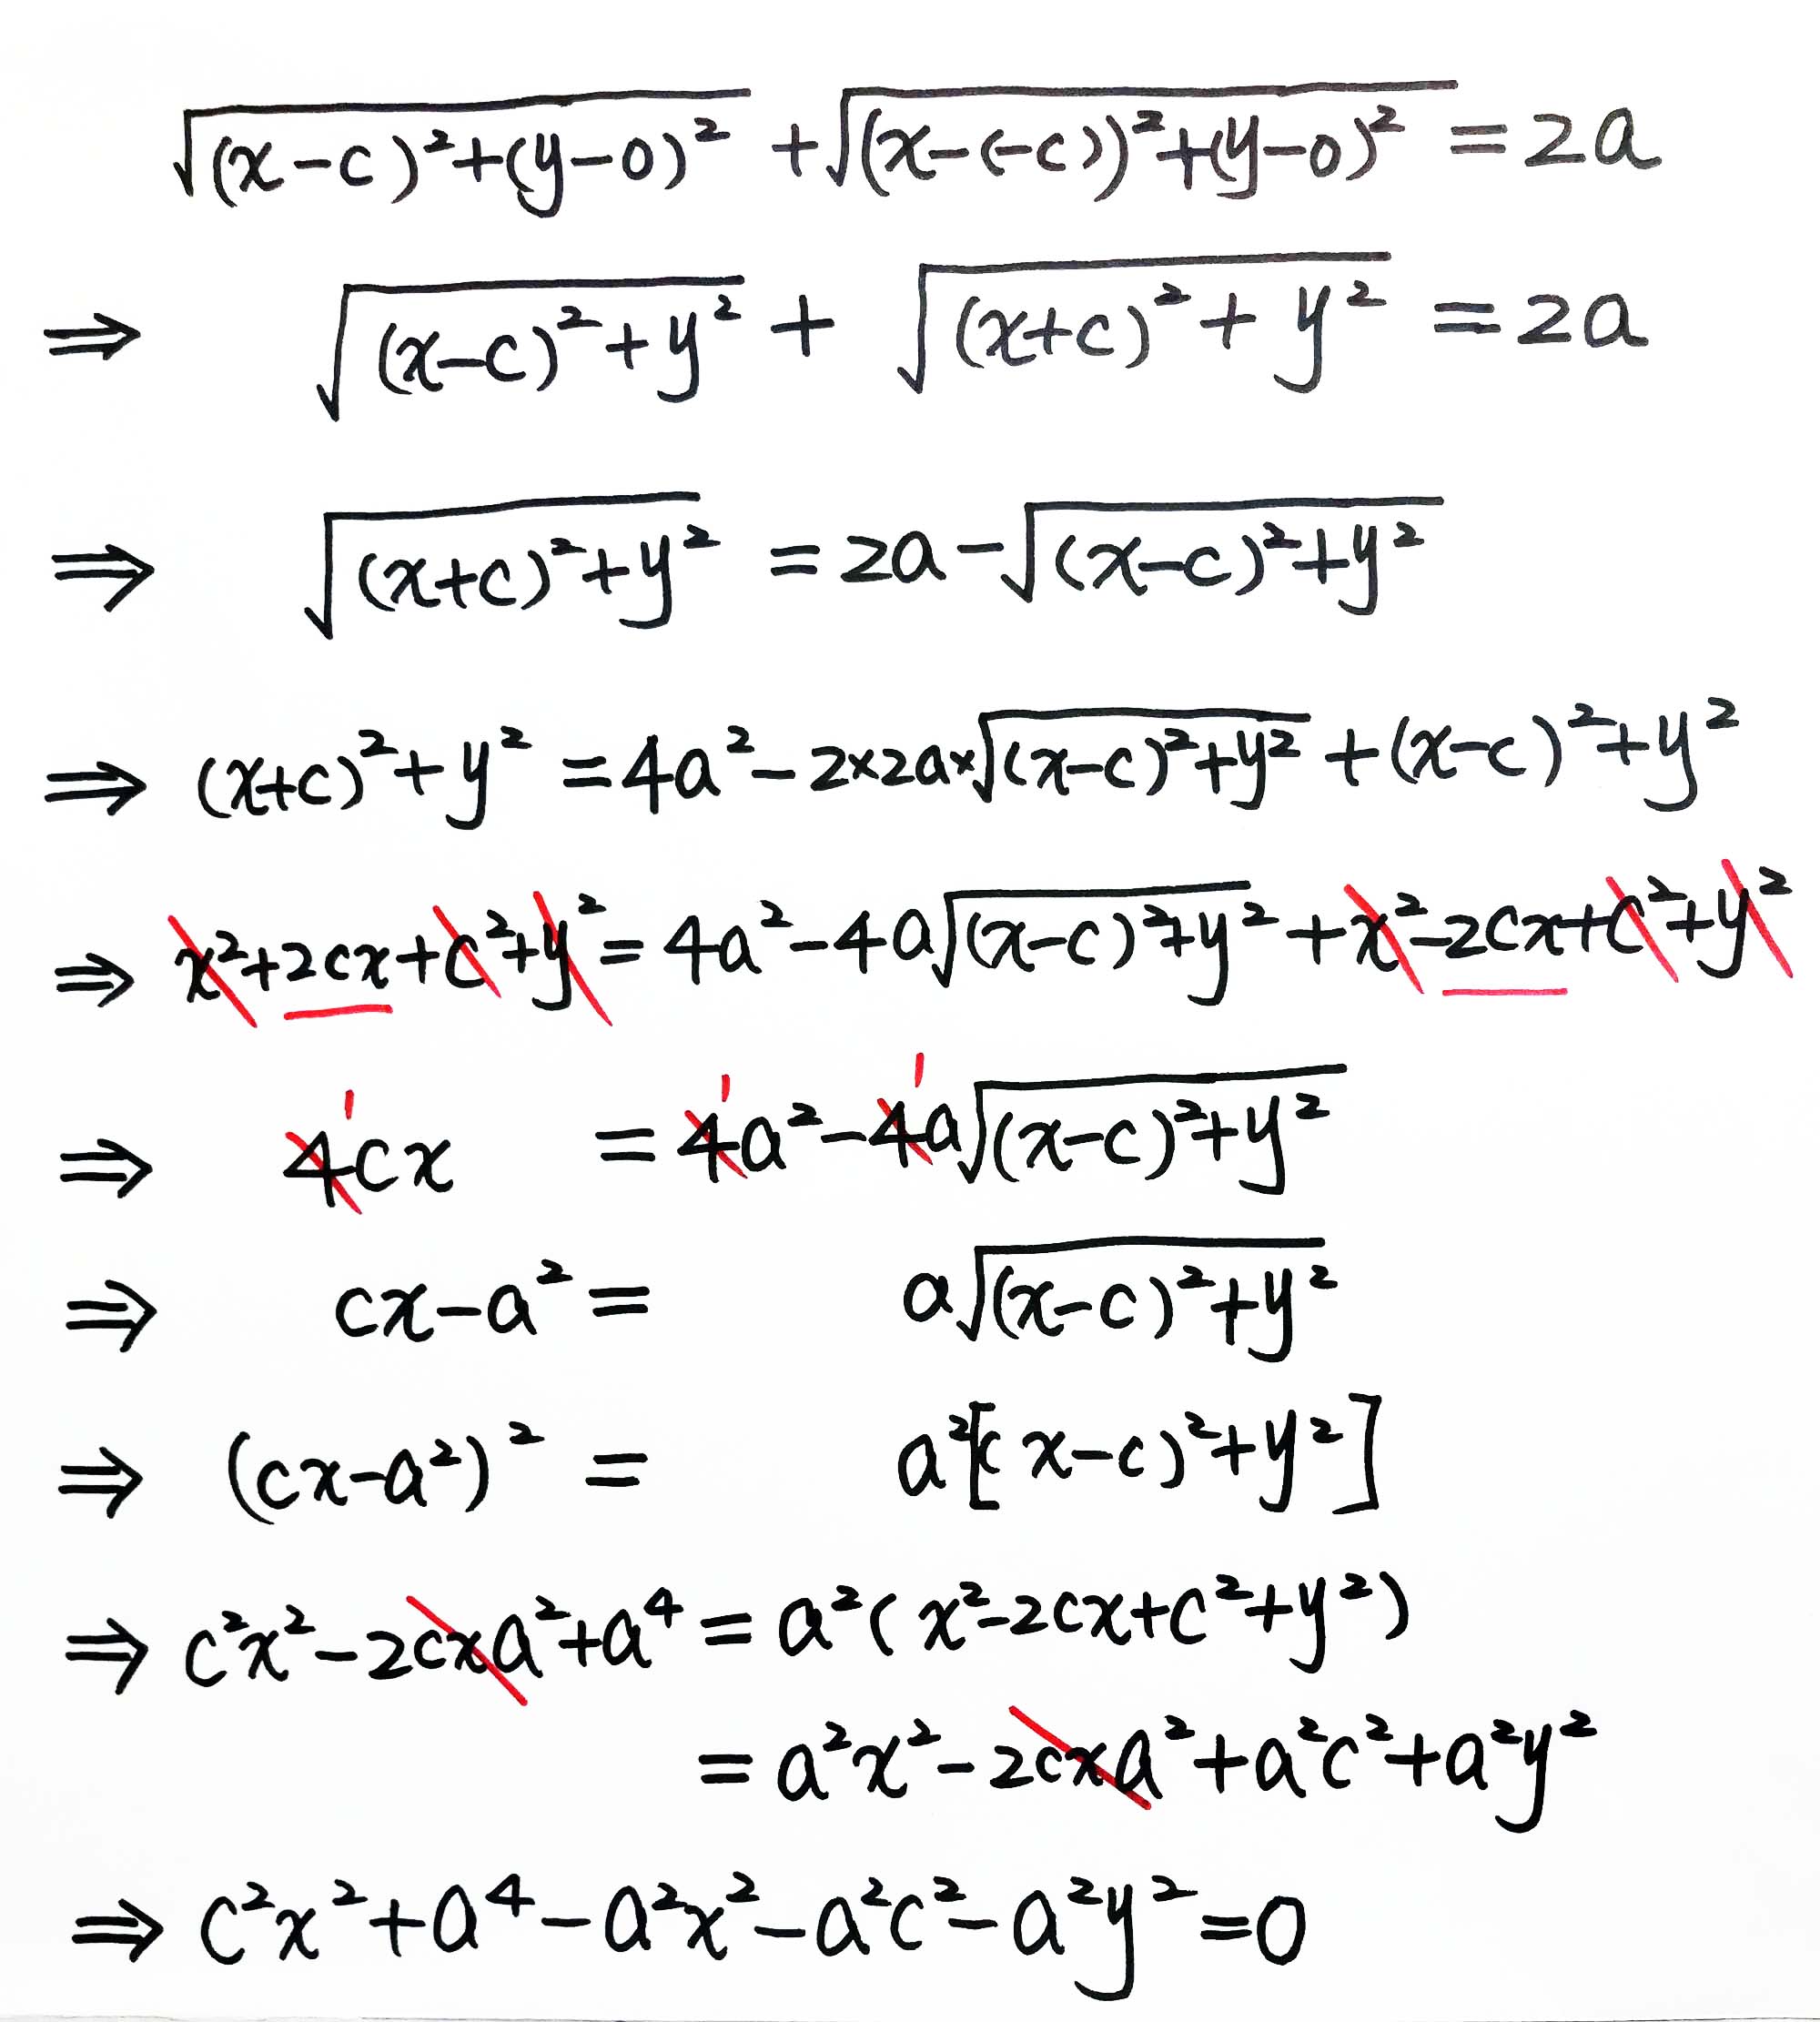 √((x-c)²+(y-0)²) + √((x-(-c))²+(y-0)²) = 2a
⇒ √((x-c)²+y²) + √((x+c)²+y²) = 2a
⇒ √((x+c)²+y²) = 2a-√((x-c)²+y²)
⇒ (x+c)²+y² = 4a²-2×2a×√((x-c)²+y²) + (x-c)²+y²
⇒ x²+2cx+c²+y² = 4a²-4a√((x-c)²+y²) + x²-2cx+c²+y²
1 1 1
⇒ 4cx = 4a²-4a√((x-c)²+y²)
⇒ cx-a² = a√((x-c)²+y²)
⇒ (cx-a²)² = a²[(x-c)²+y²]
⇒ c²x²-2cxa²+a⁴ = a²(x²-2cx+c²+y²)
= a²x²-2cxa²+a²c²+a²y²
⇒ c²x²+a⁴-a²x²-a²c²-a²y²=0